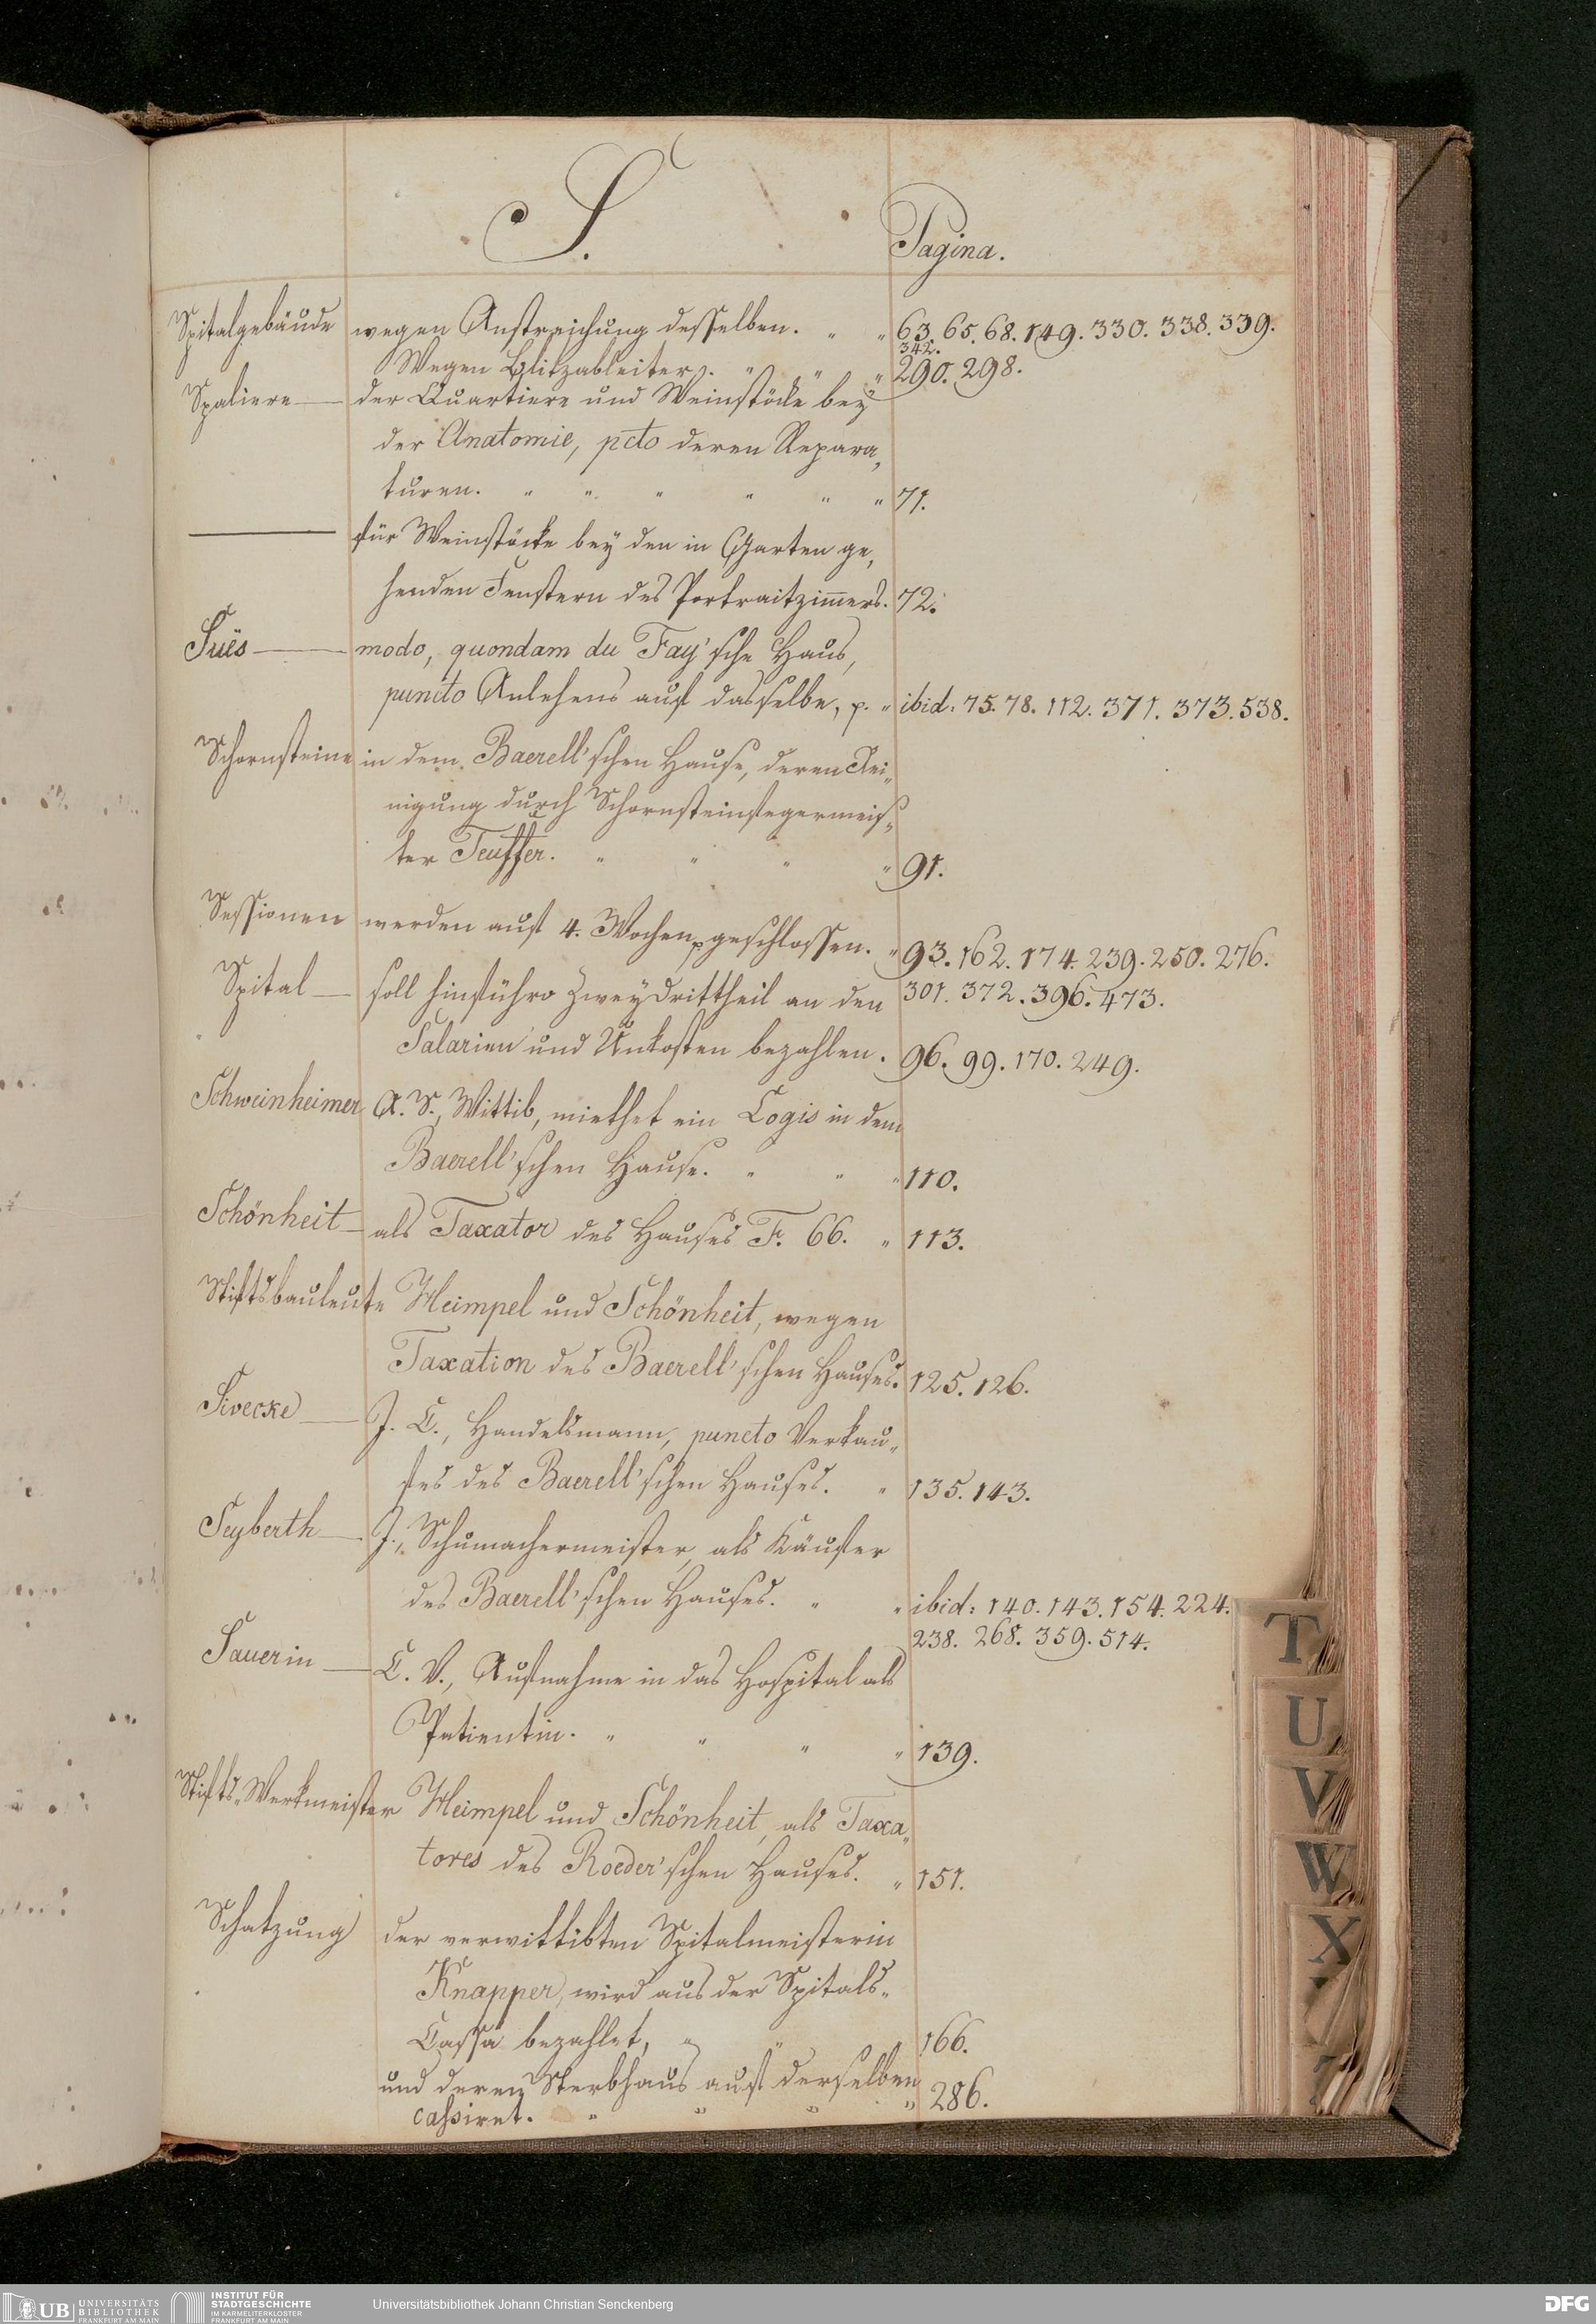 S.
Pagina.
Spitalgebäude wegen Anstreichung desselben. " " 63. 65. 68. 149. 330. 338. 339.
342.
Wegen Blitzableiter. " " " 290. 298.
Spaliere — der Quartiere und Weinstöcke bey
der Anatomie, pcto deren Repara„
turen. " " " " " " 71.
— für Weinstöcke bey den in Garten ge„
henden Fenstern des Portraitzim̄ers. 72.
Suës — modo, quondam du Fay'sche Haus,
puncto Anlehens auf dasselbe, p. " ibid: 75. 78. 112. 371. 373. 538.
Schornsteine in dem Baerell'schen Hause, deren Rei„
nigung durch Schornsteinfegermeis„
ter Teuffer. " " " " 91.
Sessionen werden auf 4. Wochen p geschlossen. " 93. 162. 174. 239. 250. 276.
301. 372. 396. 473.
Spital — soll hinführo Zweydrittheil an den
Salarien und Unkosten bezahlen. 96. 99. 170. 249.
Schweinheimer A. S., Wittib, miethet ein Logis in dem
Baerell'schen Hause. " " " 110.
Schönheit — als Taxator des Hauses F. 66. " 113.
Stiftsbauleute Heimpel und Schönheit, wegen
Taxation des Baerell'schen Hauses. 125. 126.
Sivecke — J. C., Handelsmann, puncto Verkau„
fes des Baerell'schen Hauses. " 135. 143.
Seyberth — J., Schumachermeister, als Käufer
des Baerell'schen Hauses. " " ibid: 140. 143. 154. 224.
238. 268. 359. 514.
Sauerin — C. V., Aufnahme in das Hospital als
Patientin. " " " " 139.
Stifts-Werkmeister Heimpel und Schönheit, als Taxa„
tores des Roeder'schen Hauses. " 151.
Schatzung der verwittibten Spitalmeisterin
Knapper, wird aus der Spitals„
Cassa bezahlet, " " 166.
und deren Sterbhaus auf derselben
cassiret. " " " " 286.
T
U
V
W
X
UB UNIVERSITÄTS
BIBLIOTHEK
FRANKFURT AM MAIN
INSTITUT FÜR
STADTGESCHICHTE
IM KARMELITERKLOSTER
FRANKFURT AM MAIN
Universitätsbibliothek Johann Christian Senckenberg
DFG